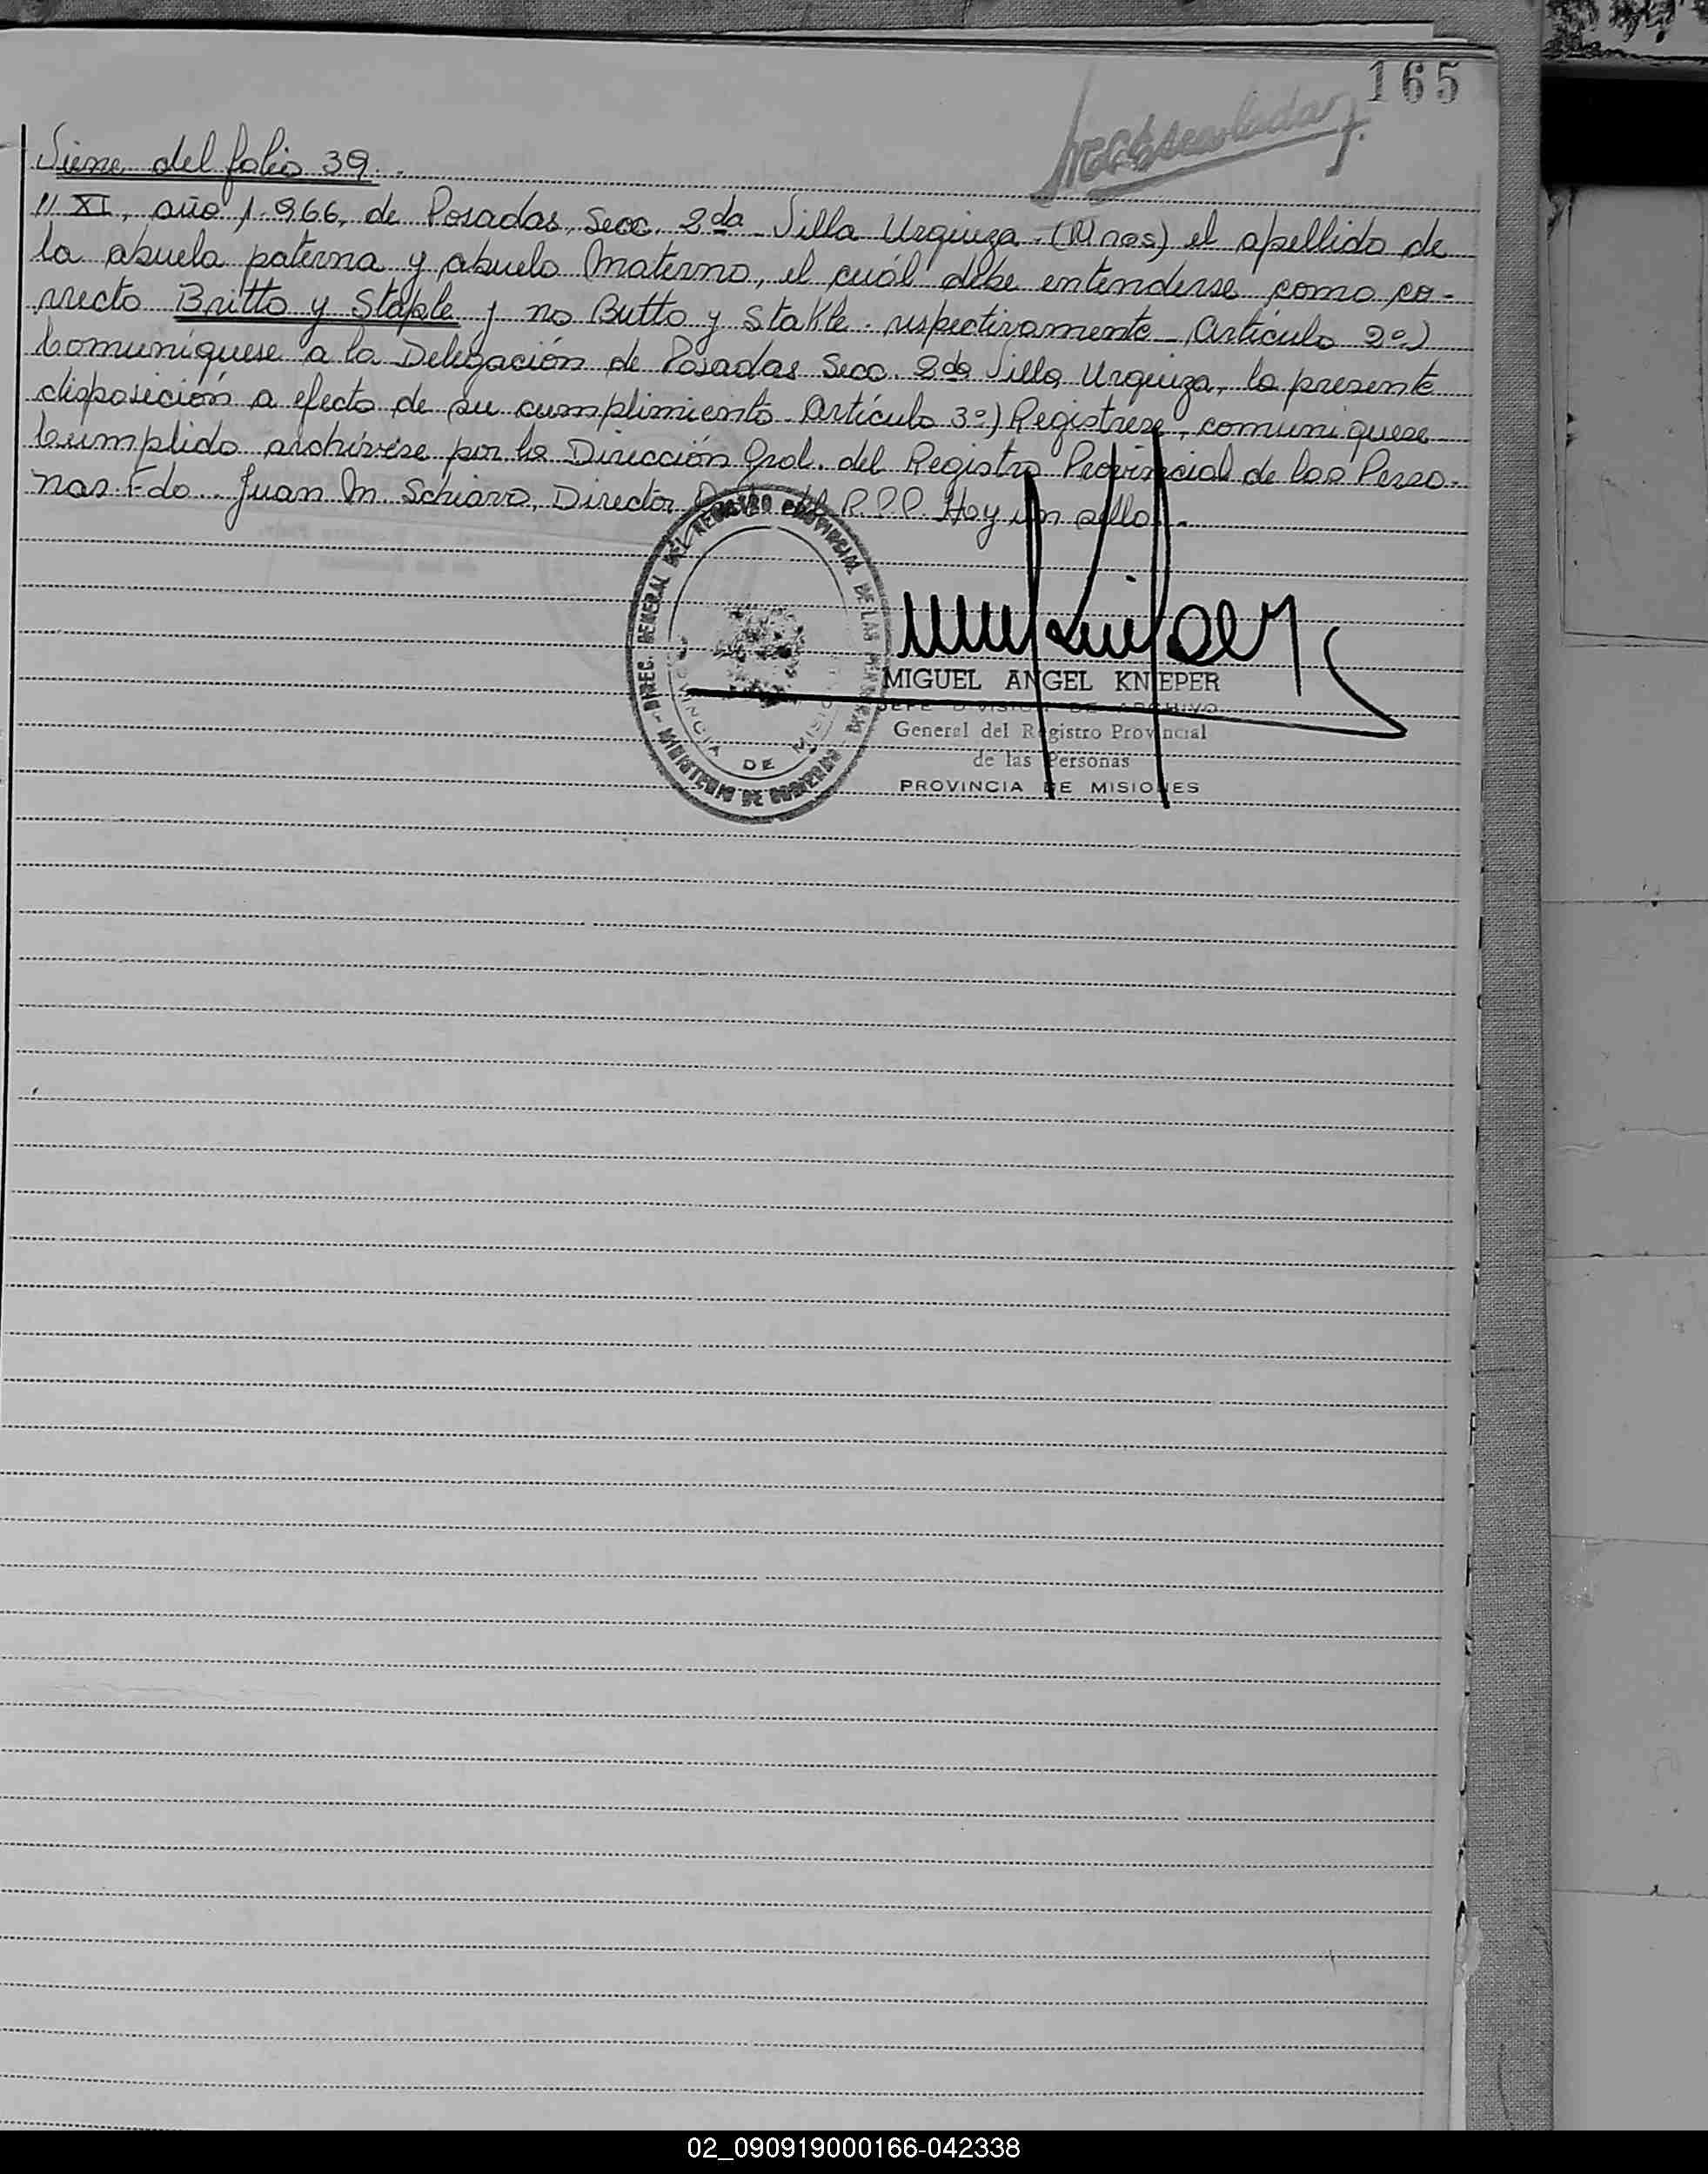 165
Viene del folio 39..
" XI, año 1.966, de Posadas, Secc. 2da Villa Urquiza. (Mnes) el apellido de
la abuela paterna y abuelo Materno, el cuál debe entenderse como co-
rrecto Britto y Staple y no Butto y Stakle. respectivamente - Artículo 2º)
Comuníquese a la Delegación de Posadas Secc. 2da Villa Urquiza, la presente
disposición a efecto de su cumplimiento. Artículo 3º) Regístrese, comuníquese
Cumplido archívese por la Dirección Gral. del Registro Provincial de las Perso-
nas. Fdo. Juan M. Schiavo, Director R.P.P. Hay un sello.
DIREC. GENERAL DEL REGISTRO PROVINCIAL DE LAS PERSONAS - MINISTERIO DE GOBIERNO
PROVINCIA DE MISIONES
MIGUEL ANGEL KNIEPER
JEFE DIVISION DE ARCHIVO
General del Registro Provincial
de las Personas
PROVINCIA DE MISIONES
02_090919000166-042338